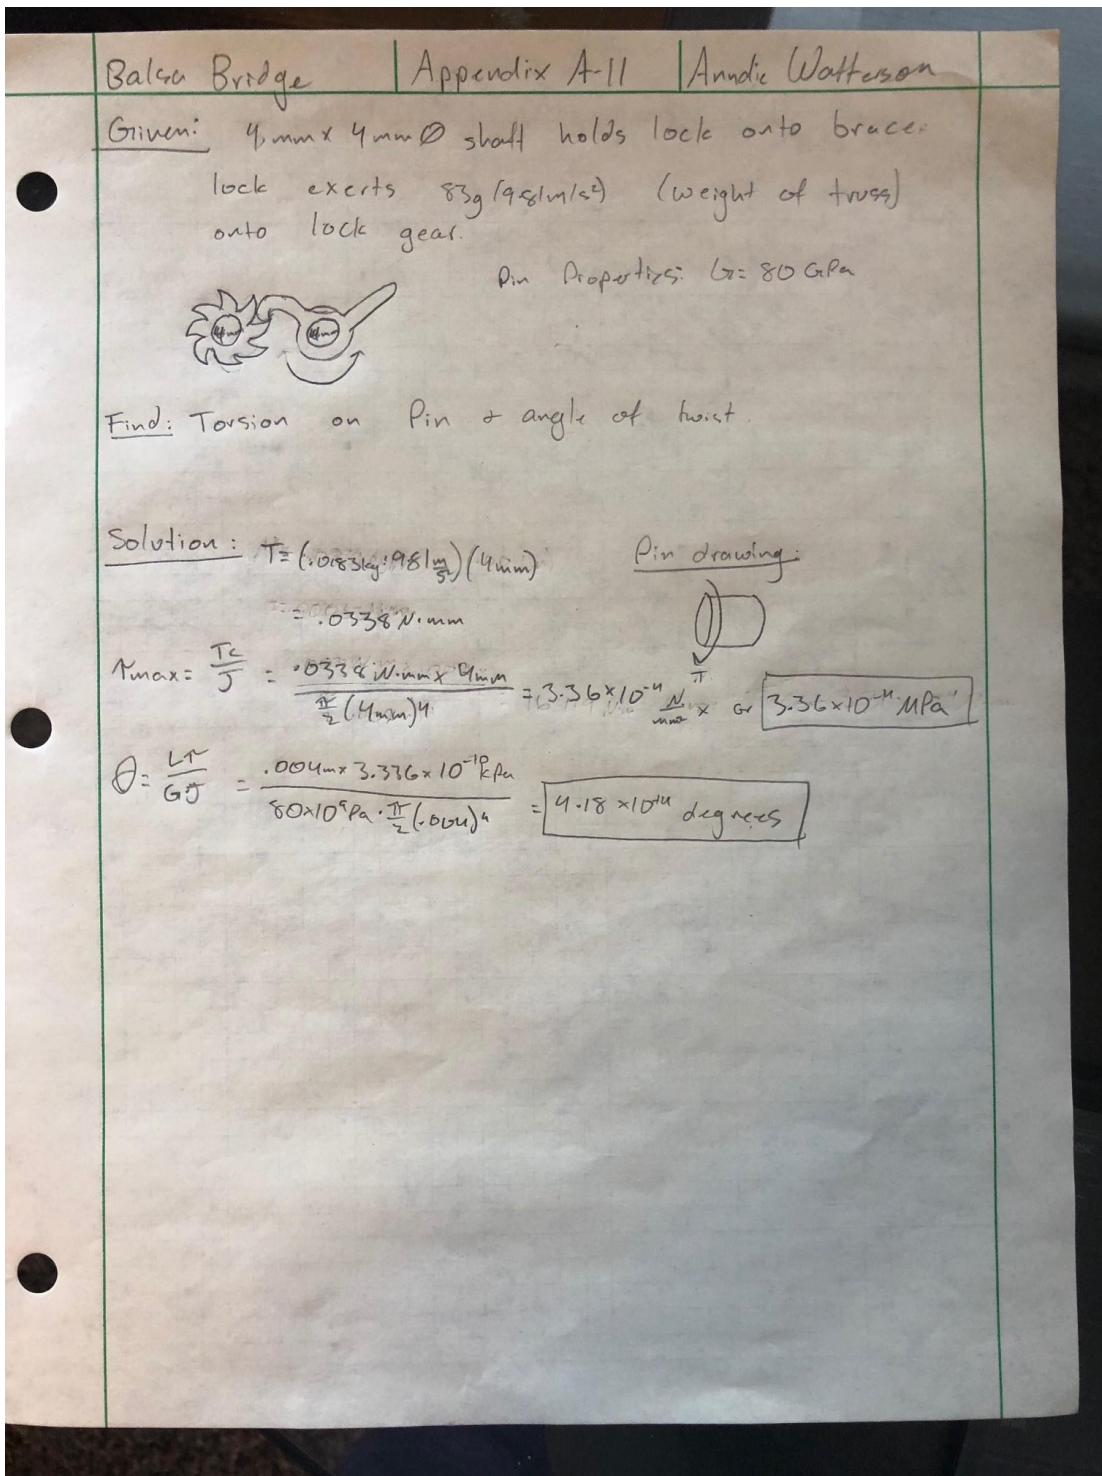 Balsa Bridge | Appendix A-11 | Anndie Watterson
Given: 4mm x 4mm Ø shaft holds lock onto brace.
lock exerts 83g (9.81m/s²) (weight of truss)
onto lock gear.
Pin Properties: G = 80 GPa
4mm 4mm
Find: Torsion on Pin & angle of twist.
Solution: T = (.0183kg · 9.81 m/s²)(4mm)
Pin drawing:
= .0338 N·mm
T
τmax = Tc/J = .0338 N·mm x 4mm / π/2 (4mm)4 = 3.36×10⁻⁴ N/mm² x or 3.36×10⁻⁴ MPa
θ = Lτ/GJ = .004m x 3.336×10⁻¹⁰ kPa / 80×10⁹Pa · π/2 (.004)⁴ = 4.18×10⁻¹⁴ degrees